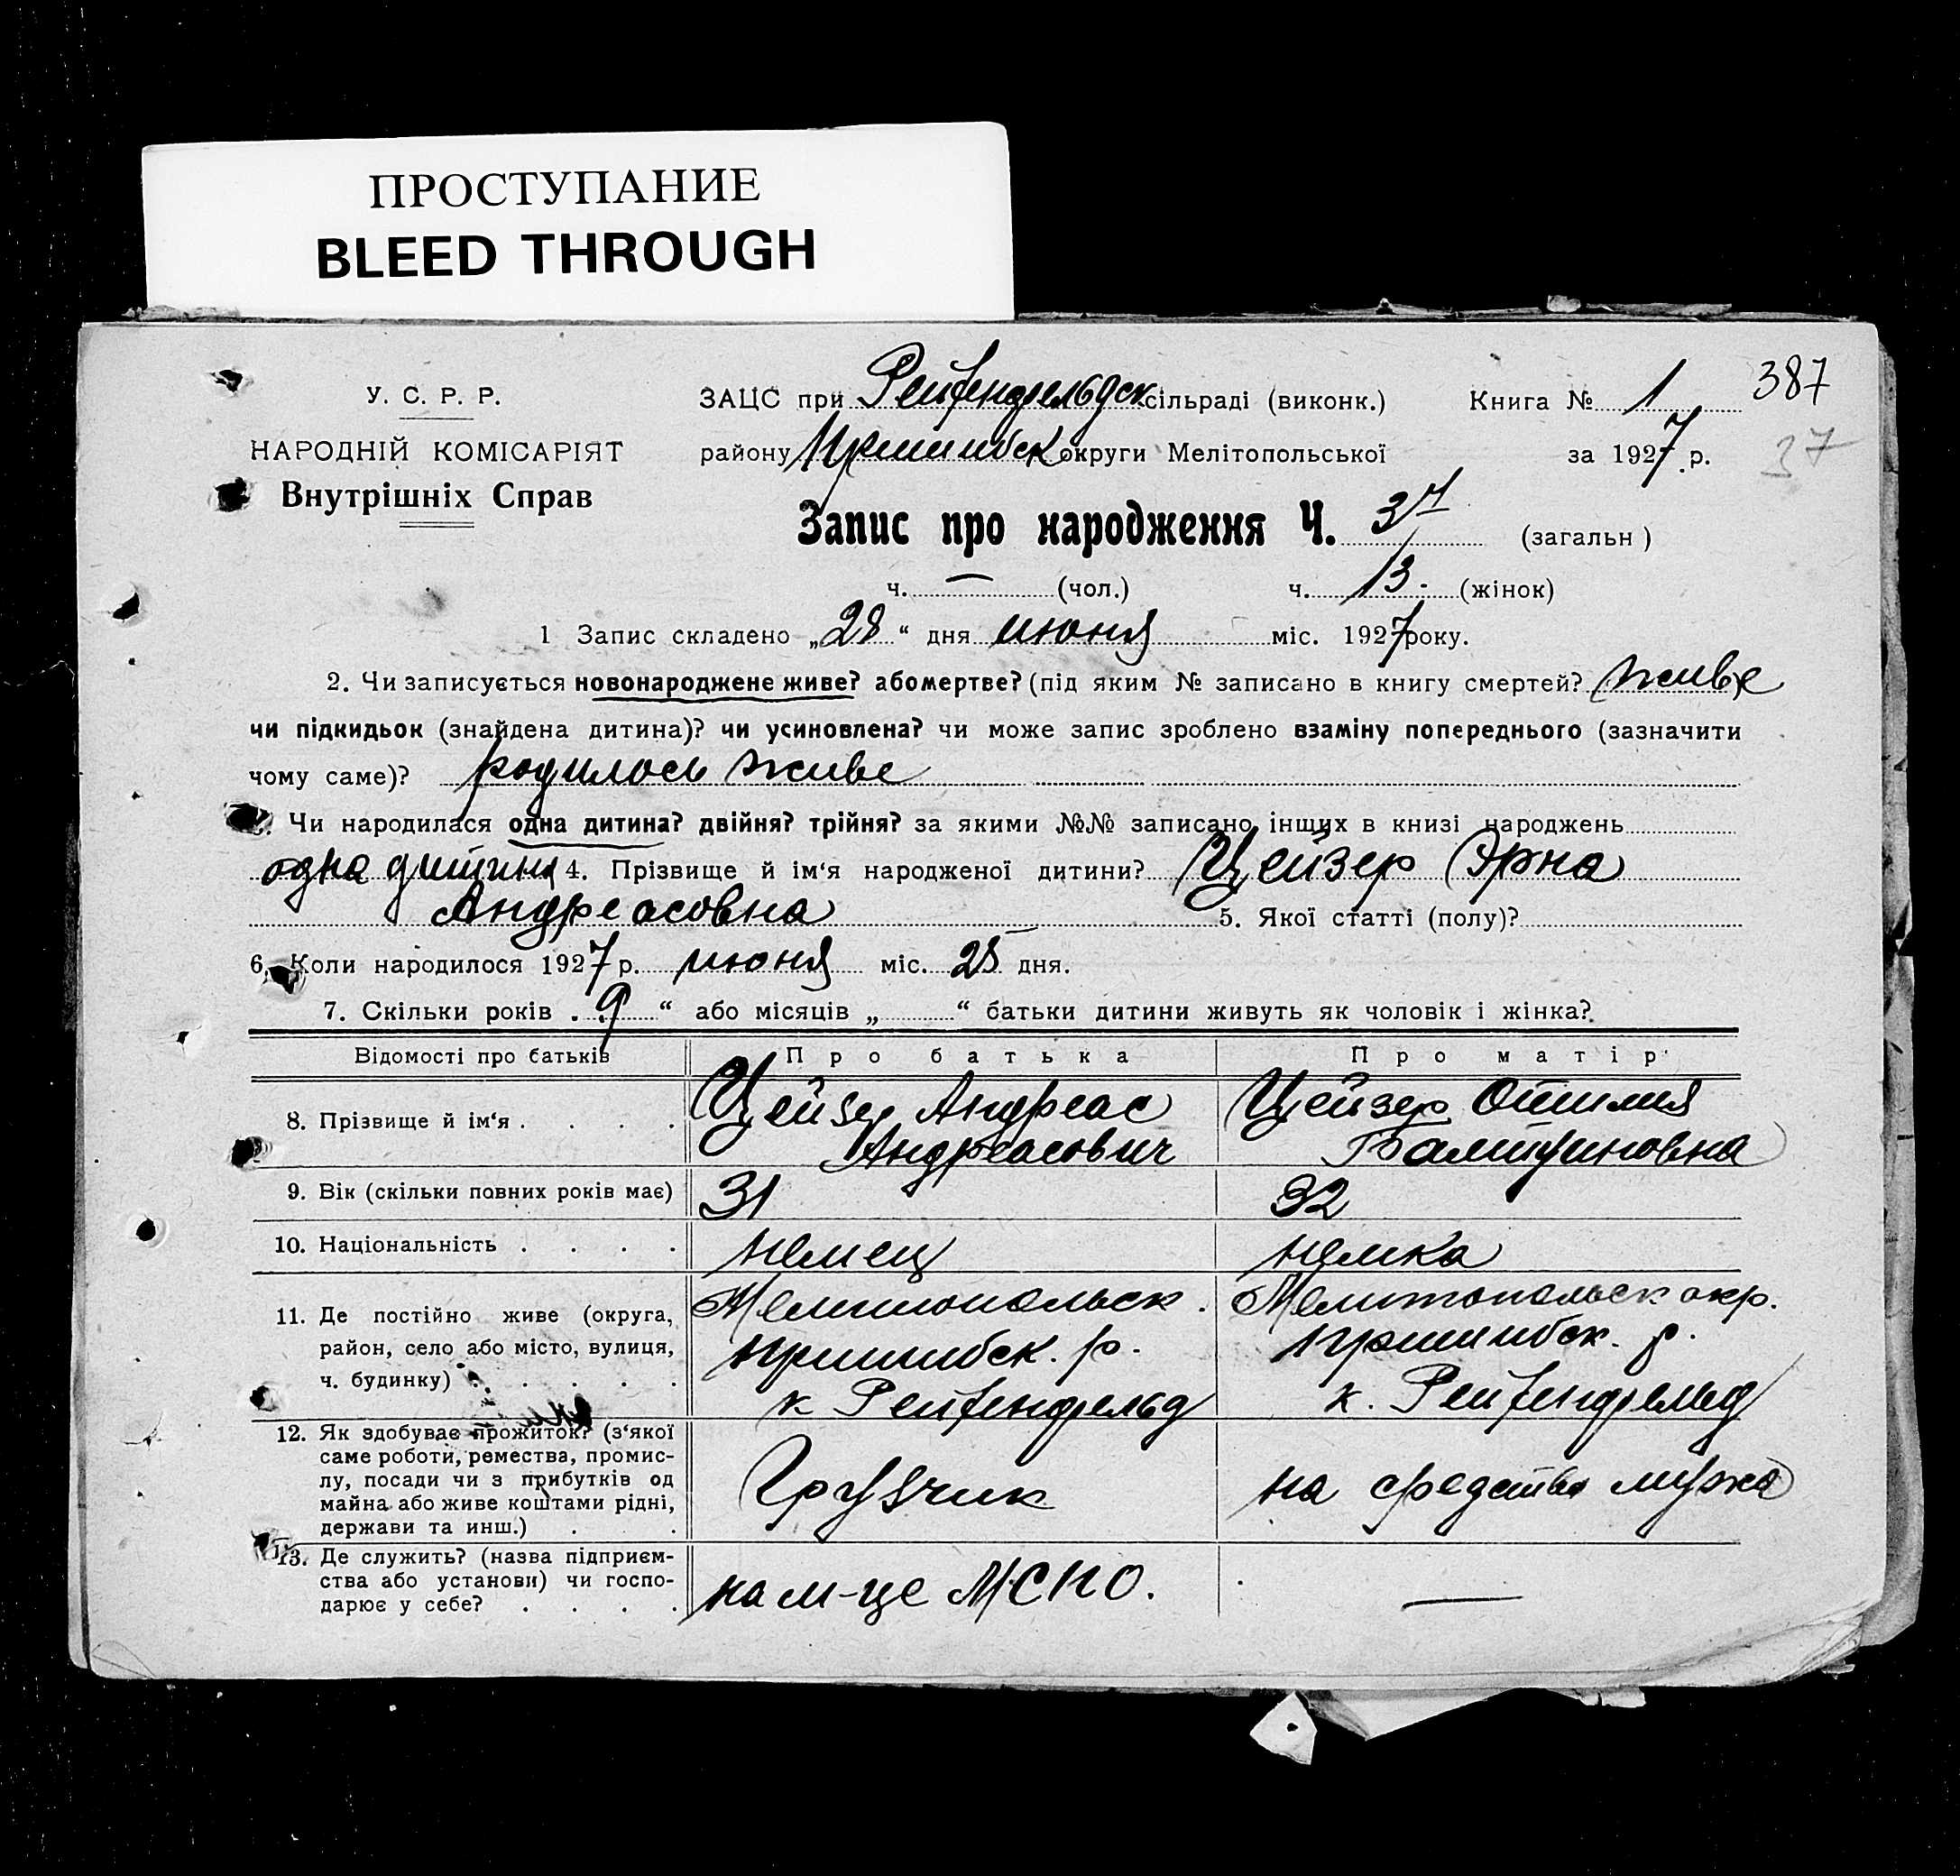 ПРОСТУПАНИЕ
BLEED THROUGH
У. С. Р. Р.
НАРОДНІЙ КОМІСАРІЯТ
Внутрішніх Справ
ЗАЦС при Рейхенфельдск сільраді (виконк.) Книга № 1 387
району Пришибск округи Мелітопольської за 1927 р. 37
Запис про народження Ч. 37 (загальн)
ч. — (чол.) ч. 13. (жінок)
1 Запис складено „28“ дня июня міс. 1927 року.
2. Чи записується новонароджене живе? або мертве? (під яким № записано в книгу смертей? живе
чи підкидьок (знайдена дитина)? чи усиновлена? чи може запис зроблено взаміну попереднього (зазначити
чому саме)? родилось живе
3. Чи народилася одна дитина? двійня? трійня? за якими №№ записано інщих в книзі народжень
одна дитина 4. Прізвище й ім‘я народженої дитини? Цейзер Эрна
Андреасовна 5. Якої статті (полу)?
6. Коли народилося 1927 р. июня міс. 25 дня.
7. Скільки років „9“ або місяців „ “ батьки дитини живуть як чоловік і жінка?
Відомості про батьків Про батька Про матір
8. Прізвище й ім‘я . . . . Цейзер Андреас Андреасович Цейзер Отилия
9. Вік (скільки повних років має) 31 32
10. Національність . . . . немец немка
11. Де постійно живе (округа, Мелитопольск. Мелитопольск окр.
район, село або місто, вулиця, пришибск. р. пришибск. р.
ч. будинку) . . . . . к Рейхенфельд к. Рейхенфельд
12. Як здобуває прожиток? (з‘якої
саме роботи, ремества, промис-
лу, посади чи з прибутків од Грузчик на средства мужа
майна або живе коштами рідні,
держави та инш.) . .
13. Де служить? (назва підприєм-
ства або установи) чи госпо- на м-це МСПО. —
дарює у себе? . . . .